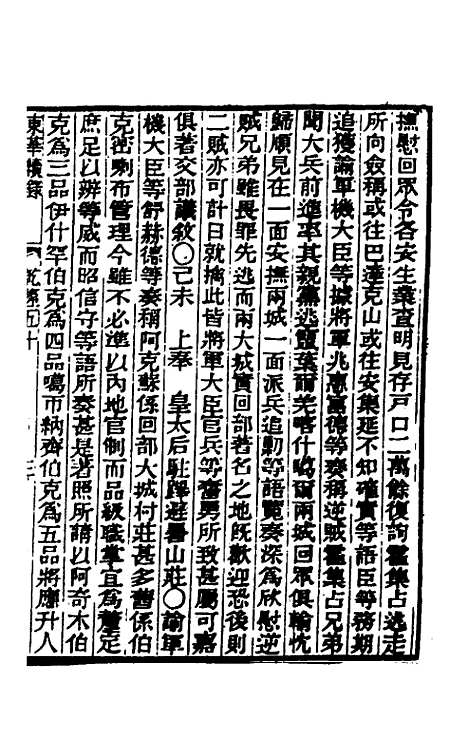 撫慰回眾令各安生業查明見存戶口二萬餘復詢霍集占逃走
所向僉稱或往巴達克山或往安集延不知確實等語臣等務期
追獲諭軍機大臣等據將軍兆惠富德等奏稱逆賊霍集占兄弟
聞大兵前進率其親黨逃竄葉爾羌喀什噶爾兩城回眾俱輸忱
歸順見在一面安撫兩城一面派兵追勦等語覽奏深為欣慰逆
賊兄弟雖畏罪先逃而兩大城實回部著名之地既歡迎恐後則
二賊亦可計日就擒此皆將軍大臣官兵等奮勇所致甚屬可嘉
俱著交部議敘〇己未 上奉 皇太后駐蹕避暑山莊〇諭軍
機大臣等舒赫德等奏稱阿克蘇係回部大城村莊甚多舊係伯
克密喇布管理今雖不必準以內地官制而品級職掌宜為釐定
庶足以辨等威而昭信守等語所奏甚是著照所請以阿奇木伯
克為三品伊什罕伯克為四品噶雨納齊伯克為五品將應升人
東華續錄 乾隆五十